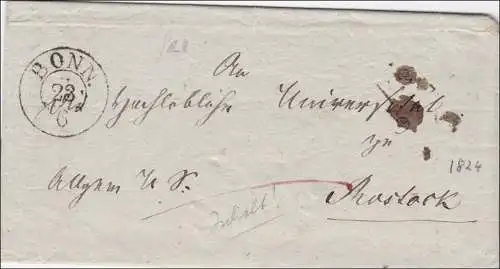 BONN.
23
6
An
Hochlöbliche Universität
zu
1824
Allgem U. S.
Rostock
Inhalt!